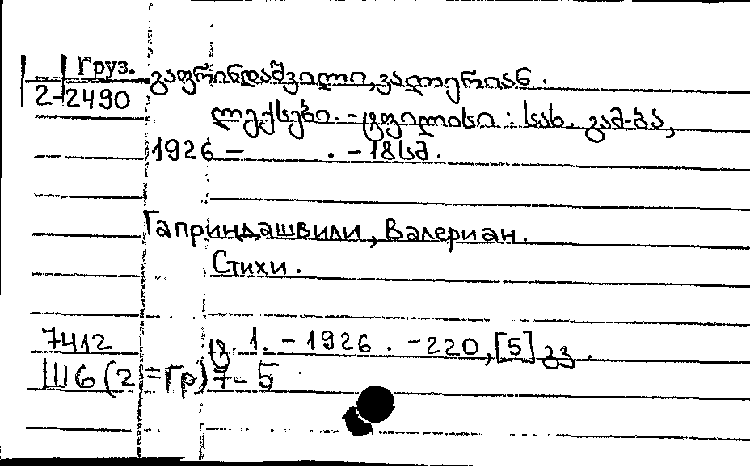 Груз.
2-2490
გაფრინდაშვილი, ვალერიან.
ლექსები. - ტფილისი : სახ. გამ-ბა,
1926 - . - 18 სმ.
Гаприндашвили, Валериан.
Стихи.
7412 ტ. 1. - 1926. - 220, [5] გვ.
Ш6(2=Гр)7-5